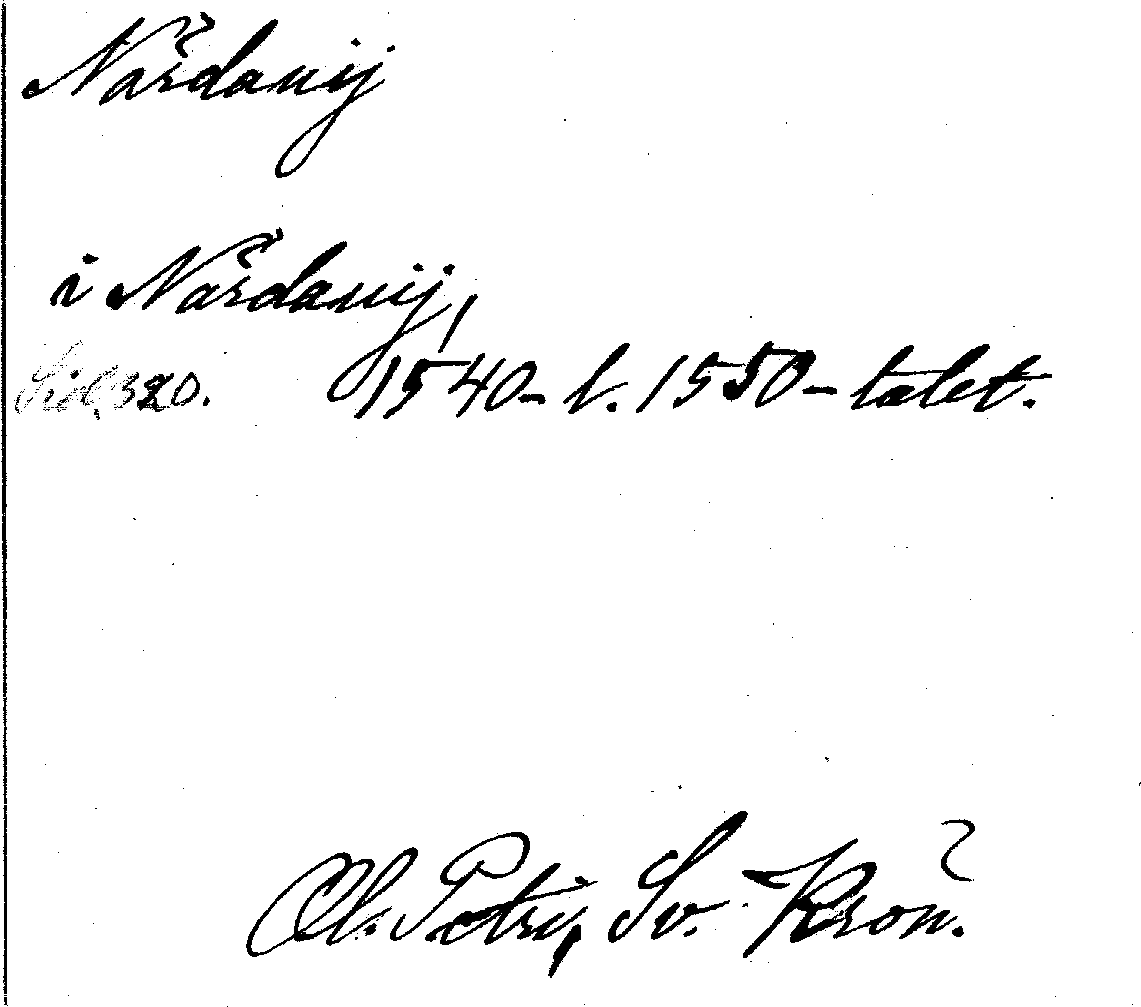 Nårdauij
i Nårdauij,
Sid. 320. 1540- l. 1550-talet.
Ol. Petri, Sv. Krön.